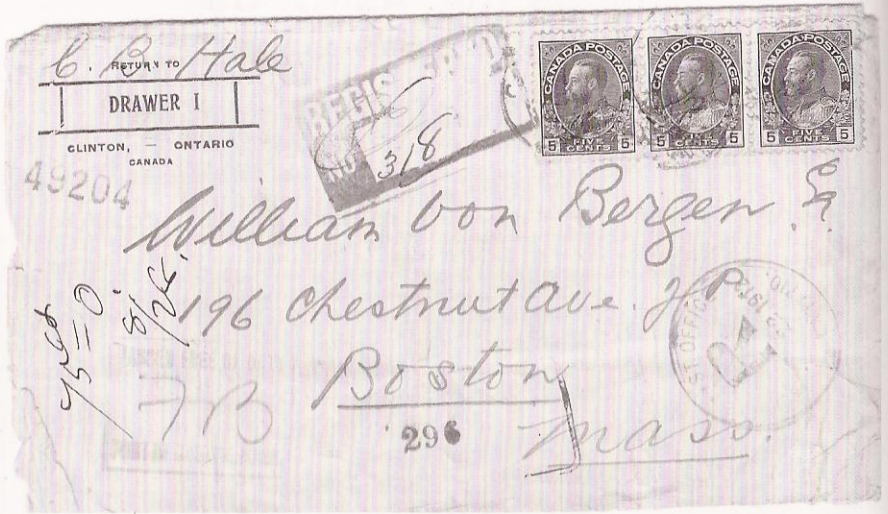 C. B. Hale
RETURN TO
DRAWER 1
CLINTON, — ONTARIO
CANADA
49204
REGISTERED
No
318
CANADA POSTAGE
5 FIVE CENTS 5
CANADA POSTAGE
5 FIVE CENTS 5
CANADA POSTAGE
5 FIVE CENTS 5
William von Bergen Esq.
196 Chestnut Ave. J. P.
Boston
Mass.
296
7B